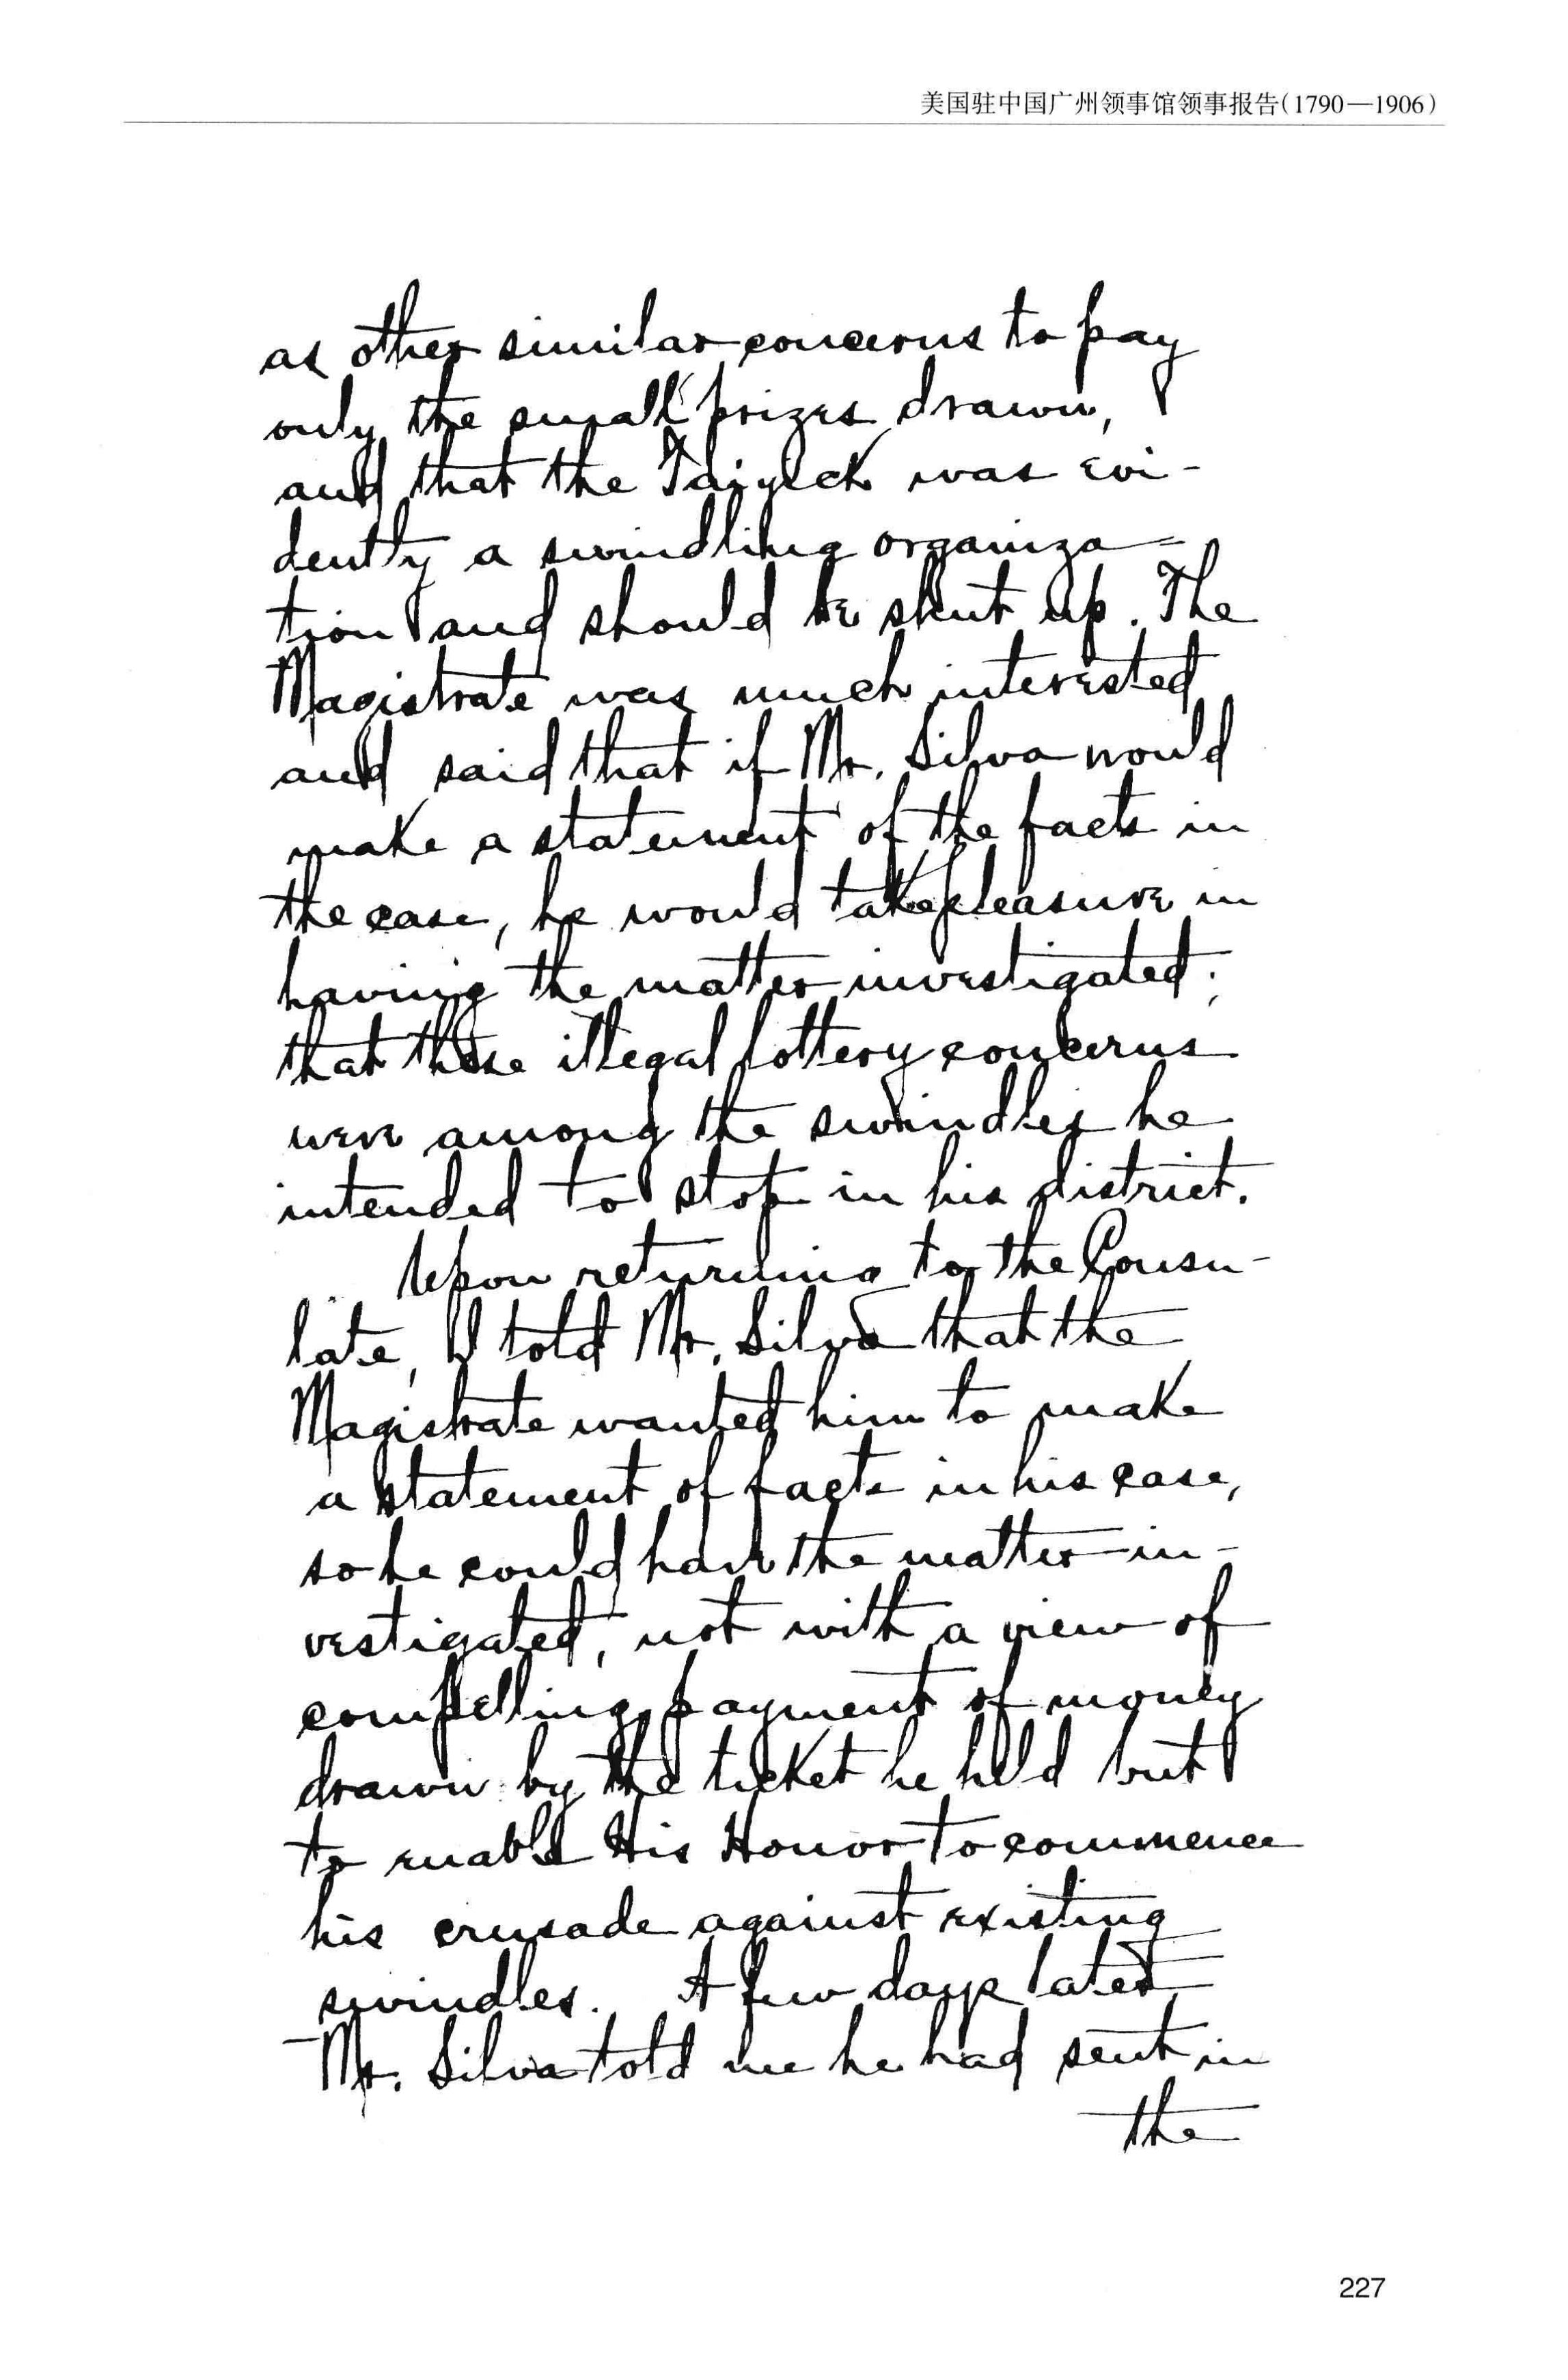 美国驻中国广州领事馆领事报告(1790—1906)
as other similar concerns to pay
only the small prizes drawn,
and that the Taiyeck was evi-
dently a swindling organiza=
tion and should be shut up. The
Magistrate was much interested
and said that if Mr. Silva would
make a statement of the facts in
the case, he would take pleasure in
having the matter investigated;
that these illegal lottery concerns
were among the swindles he
intended to stop in his district.
Upon returning to the Consu-
late, I told Mr. Silva that the
Magistrate wanted him to make
a statement of facts in his case,
so he could have the matter in-
vestigated, not with a view of
compelling payment of money
drawn by the ticket he held but
to enable His Honor to commence
his crusade against existing
swindles. A few days later
Mr. Silva told me he had sent in
the
227